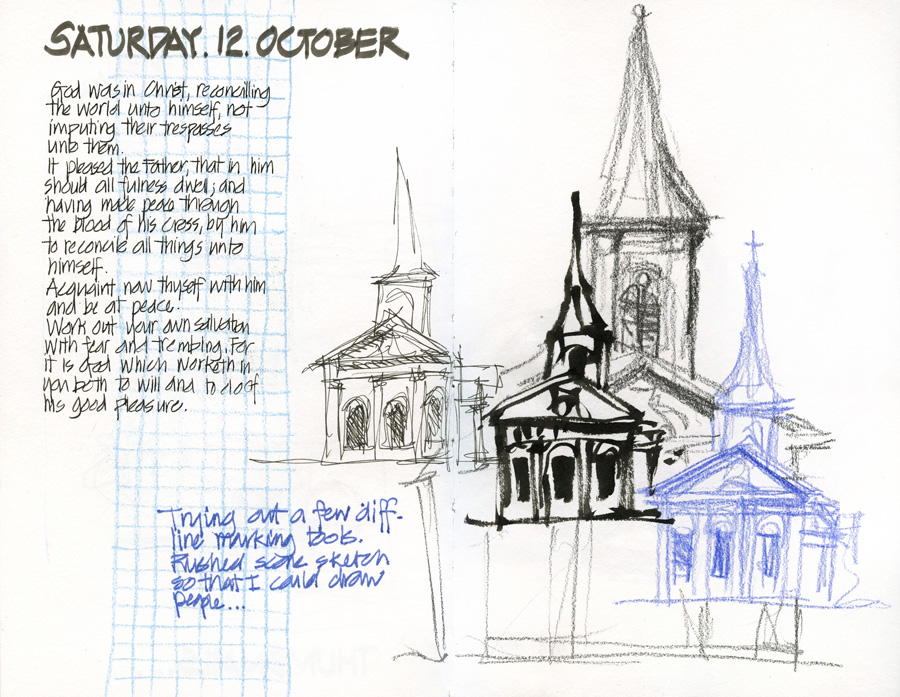 SATURDAY. 12. OCTOBER
God was in Christ, reconcilling
the world unto himself, not
imputing their trespasses
unto them.
It pleased the Father, that in him
should all fulness dwell; and
having made peace through
the blood of his cross, by him
to reconcile all things unto
himself.
Acquaint now thyself with him
and be at peace.
Work out your own salvation
with fear and trembling. For
it is God which worketh in
you both to will and to do of
his good pleasure.
Trying out a few diff-
line marking tools.
Rushed scene sketch
so that I could draw
people...